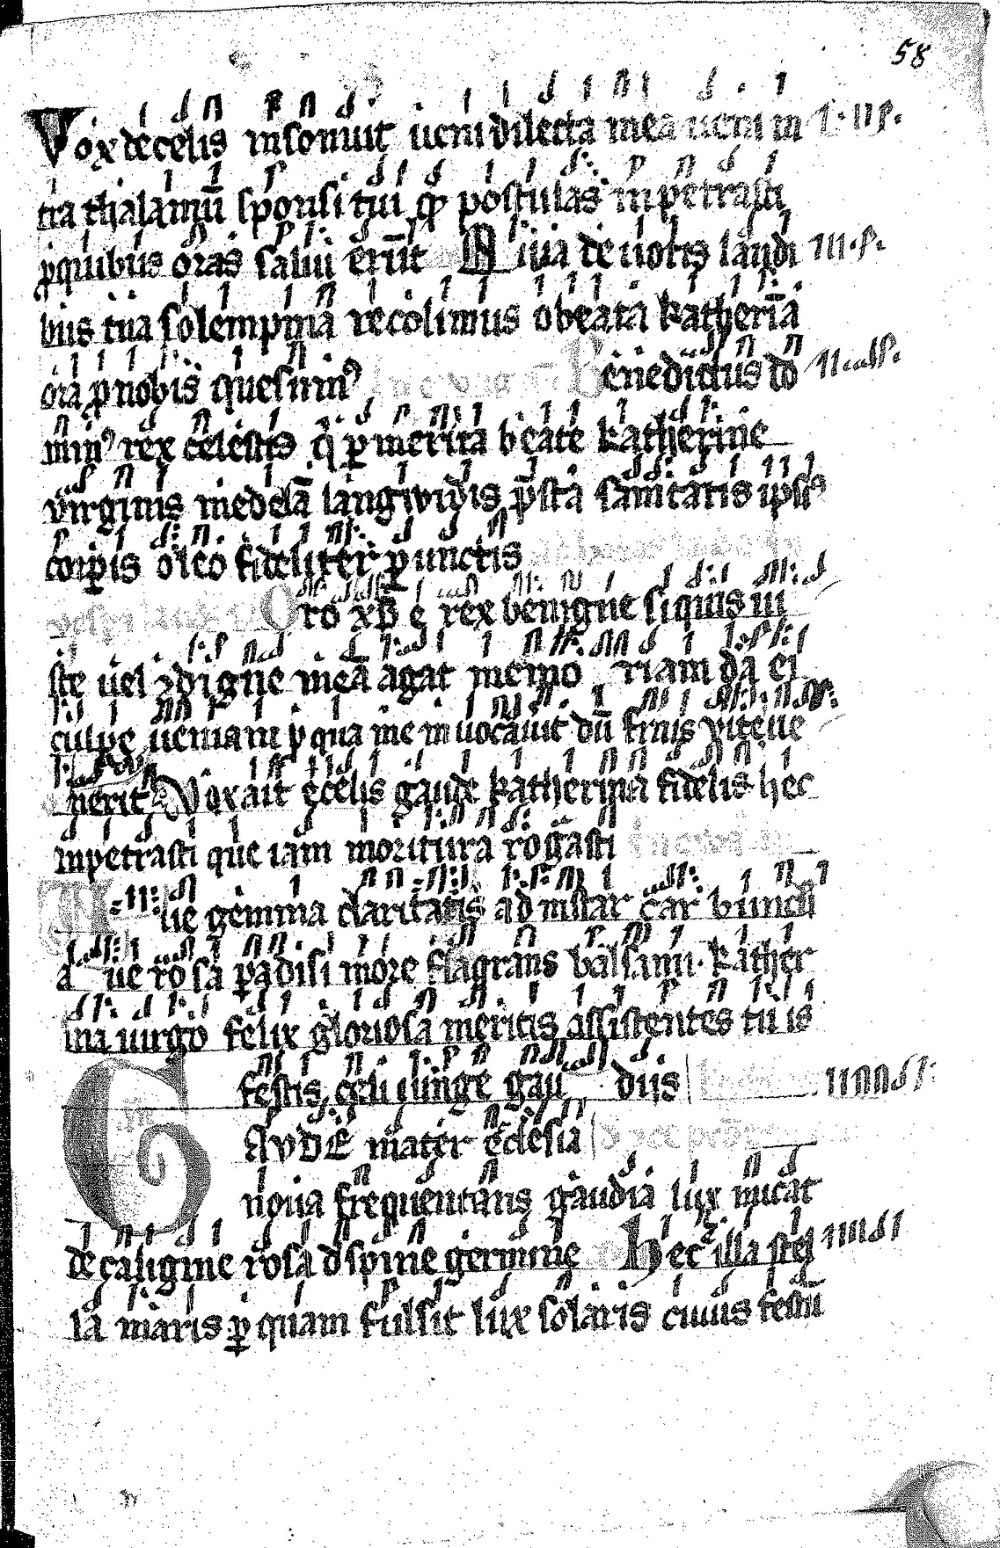 58
Vox de celis insonuit ueni dilecta mea ueni in
tra thalamū sponsi tui qd postulas inpetrasti
p quibus oras salui erūt Quia de uotis laudi
bus tua solempnia recolimus o beata katherīa
ora p nobis quesumus Benedictus do
minus rex celestis q per merita beate katherine
virginis medelā langwidis p̄stā sanitatis ipsius
corpis oleo fideliter punctis
Oro xpe rex benigne siquis iu
ste uel digne meā agat memoriam da ei
culpe ueniam p qua me inuocauit dū finis vite ue
nerit Vox ait e celis gaude katherina fidelis hec
inpetrasti que iam moritura rogasti
Aue gemma claritatis ad instar carbuncli
aue rosa paradisi more flagrans balsami. kather
ina uirgo felix gloriosa meritis assistentes tuis
festis celi iunge gaudiis
GAUDE mater ecclesia
noua frequentans gaudia lux micat
de caligine rosa d spine germine hec illa stel
la maris p quam fulsit lux solaris cuius festū